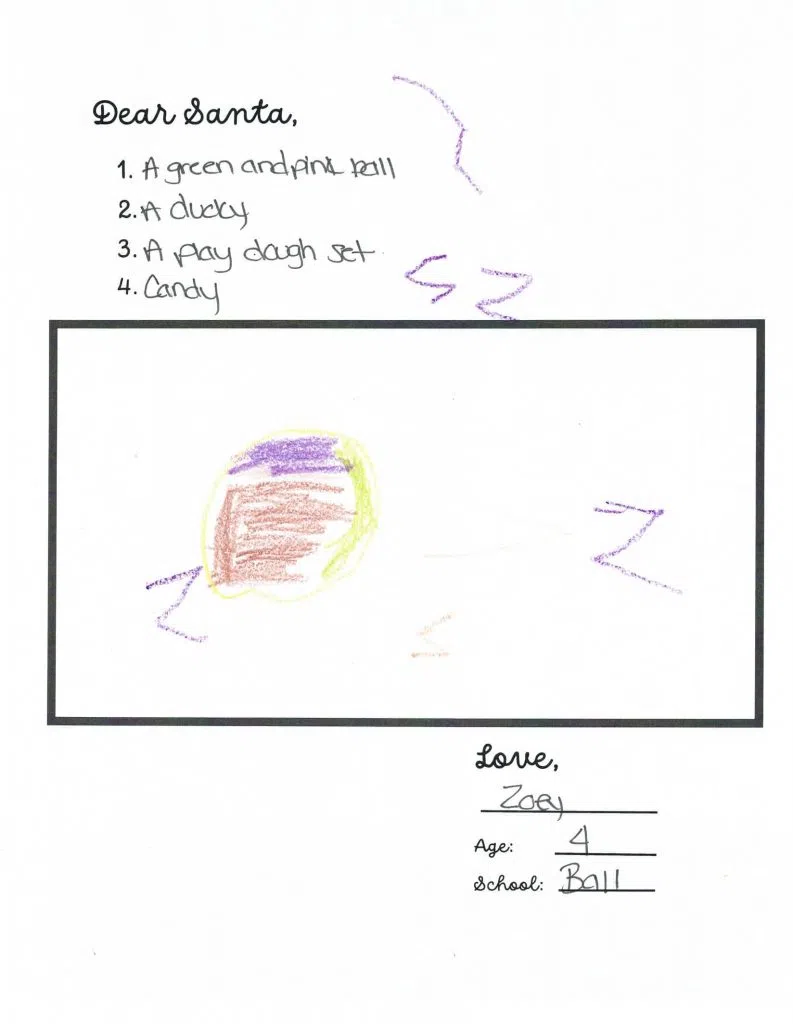 Dear Santa,
1. A green and pink ball
2. A ducky
3. A play dough set
4. Candy
S Z
Z
Z
Love,
Zoey
Age: 4
School: Ball